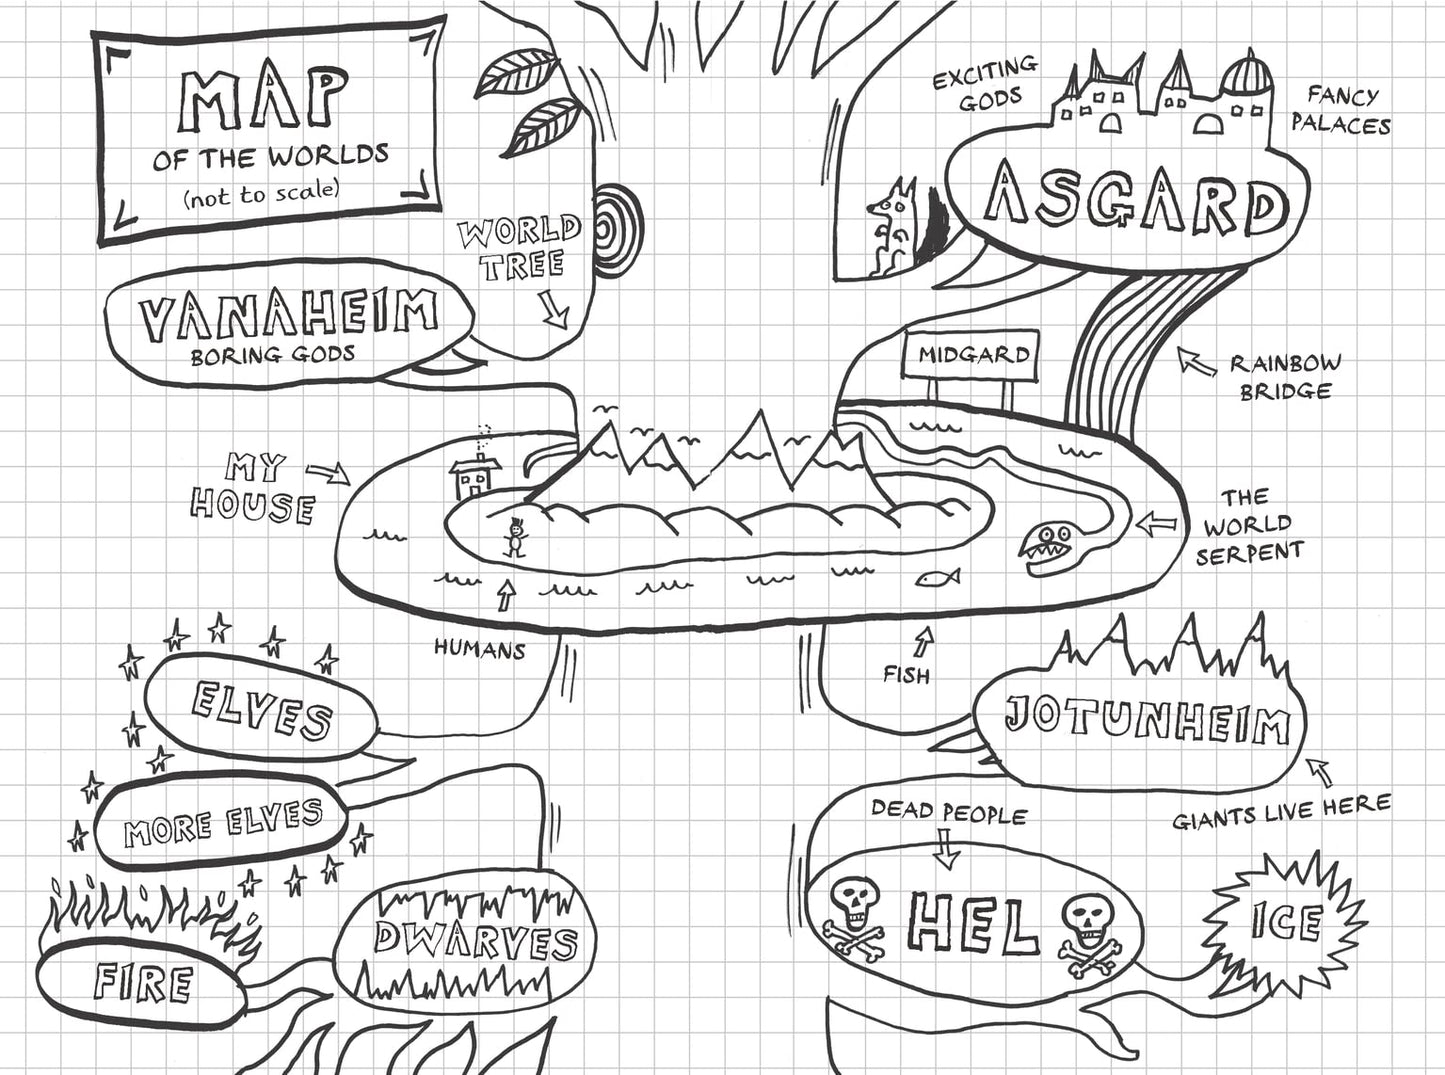 MAP
OF THE WORLDS
(not to scale)
EXCITING
GODS
FANCY
PALACES
ASGARD
WORLD
TREE
VANAHEIM
BORING GODS
MIDGARD
RAINBOW
BRIDGE
MY
HOUSE
THE
WORLD
SERPENT
HUMANS
FISH
ELVES
JOTUNHEIM
MORE ELVES
DEAD PEOPLE
GIANTS LIVE HERE
DWARVES
HEL
ICE
FIRE